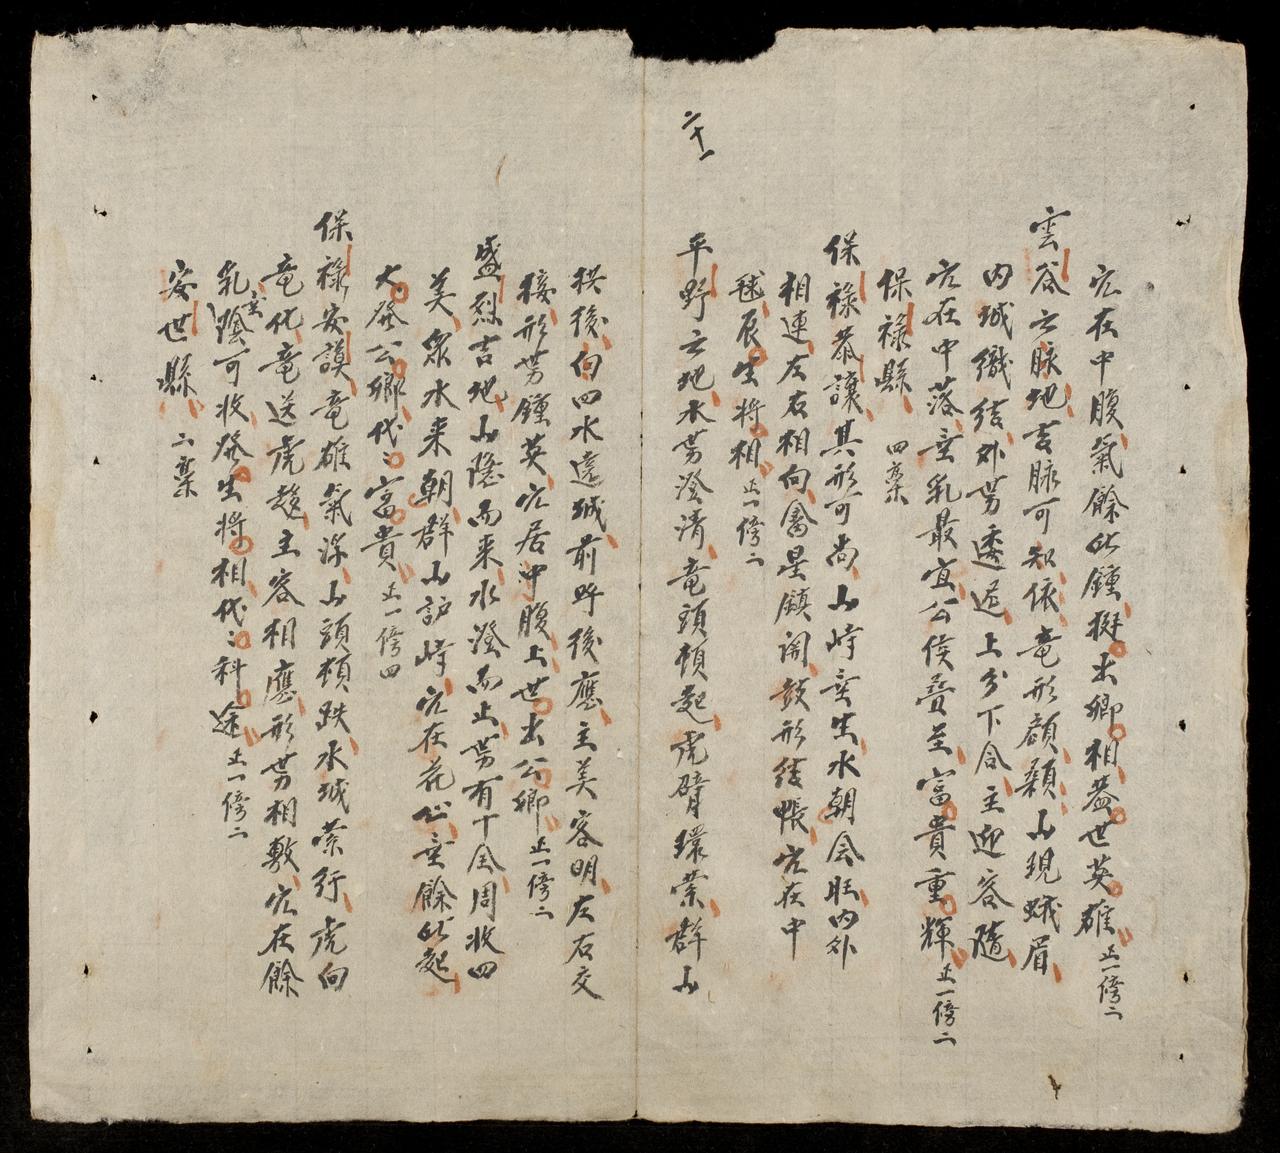 穴在中腹氣餘此鍾挺出卿相蓋世英雄正一傍二
雲谷云脉地吉脉可知依竜形顔顙山現蛾眉
内城織結外势透迤上分下合主迎客隨
穴在中落垂乳最宜公侯叠至富貴重輝正一傍二
保禄縣 四藁
保禄恭讓其形可尚山峙垂生水朝会旺内外
相連左右相向禽星鎮閙鼓形結帳穴在中
毬辰生將相正一傍二
二十一
平野云地水势澄清竜頭頓起虎臂環縈群山
拱後向四水遶城前呼後應主美客明左右交
接形势鍾英穴居中腹上世出公卿正一傍二
盛烈吉地山隱而来水澄而止势有十全周收四
美衆水来朝群山訪峙穴在花心垂餘此起
大發公卿代〻富貴正一傍四
保禄安謨竜雄氣浮山頭頓跌水城縈行虎向
竜化竜送虎趍主客相應形势相敷穴在餘
乳垂陰可收發生將相代〻科途正一傍二
安世縣 二藁